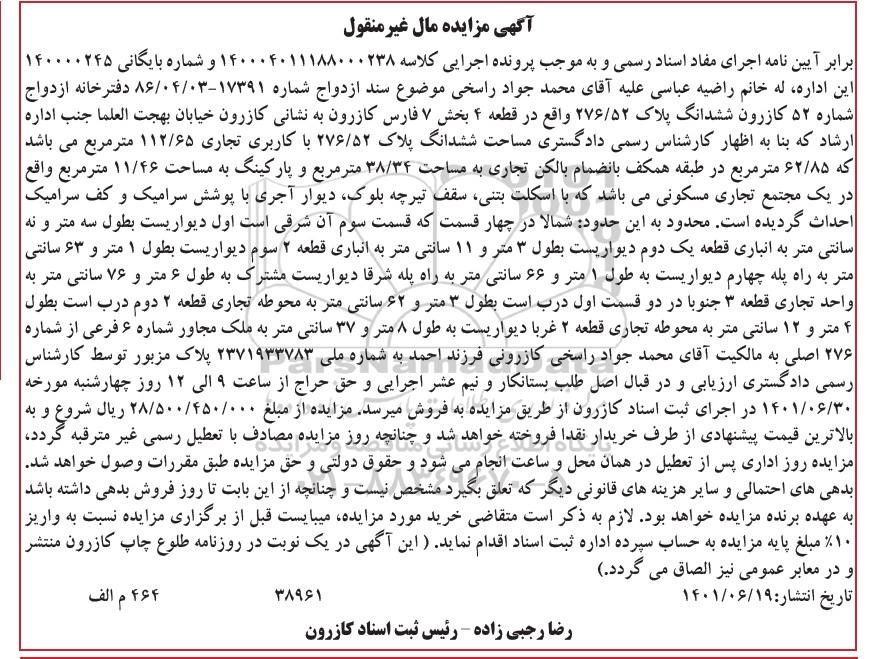 آگهی مزایده مال غیرمنقول
برابر آیین نامه اجرای مفاد اسناد رسمی و به موجب پرونده اجرایی کلاسه ۱۴۰۰۰۴۰۱۱۱۸۸۰۰۰۲۳۸ و شماره بایگانی ۱۴۰۰۰۰۲۴۵
این اداره، له خانم راضیه عباسی علیه آقای محمد جواد راسخی موضوع سند ازدواج شماره ۱۷۳۹۱-۸۶/۰۴/۰۳ دفترخانه ازدواج
شماره ۵۲ کازرون ششدانگ پلاک ۲۷۶/۵۲ واقع در قطعه ۴ بخش ۷ فارس کازرون به نشانی کازرون خیابان بهجت العلما جنب اداره
ارشاد که بنا به اظهار کارشناس رسمی دادگستری مساحت ششدانگ پلاک ۲۷۶/۵۲ با کاربری تجاری ۱۱۲/۶۵ مترمربع می باشد
که ۶۲/۸۵ مترمربع در طبقه همکف بانضمام بالکن تجاری به مساحت ۳۸/۳۴ مترمربع و پارکینگ به مساحت ۱۱/۴۶ مترمربع واقع
در یک مجتمع تجاری مسکونی می باشد که با اسکلت بتنی، سقف تیرچه بلوک، دیوار آجری با پوشش سرامیک و کف سرامیک
احداث گردیده است. محدود به این حدود: شمالا در چهار قسمت که قسمت سوم آن شرقی است اول دیواریست بطول سه متر و نه
سانتی متر به انباری قطعه یک دوم دیواریست بطول ۳ متر و ۱۱ سانتی متر به انباری قطعه ۲ سوم دیواریست بطول ۱ متر و ۶۳ سانتی
متر به راه پله چهارم دیواریست به طول ۱ متر و ۶۶ سانتی متر به راه پله شرقا دیواریست مشترک به طول ۶ متر و ۷۶ سانتی متر به
واحد تجاری قطعه ۳ جنوبا در دو قسمت اول درب است بطول ۳ متر و ۶۲ سانتی متر به محوطه تجاری قطعه ۲ دوم درب است بطول
۴ متر و ۱۲ سانتی متر به محوطه تجاری قطعه ۲ غربا دیواریست به طول ۸ متر و ۳۷ سانتی متر به ملک مجاور شماره ۶ فرعی از شماره
۲۷۶ اصلی به مالکیت آقای محمد جواد راسخی کازرونی فرزند احمد به شماره ملی ۲۳۷۱۹۳۳۷۸۳ پلاک مزبور توسط کارشناس
رسمی دادگستری ارزیابی و در قبال اصل طلب بستانکار و نیم عشر اجرایی و حق حراج از ساعت ۹ الی ۱۲ روز چهارشنبه مورخه
۱۴۰۱/۰۶/۳۰ در اجرای ثبت اسناد کازرون از طریق مزایده به فروش میرسد. مزایده از مبلغ ۲۸/۵۰۰/۴۵۰/۰۰۰ ریال شروع و به
بالاترین قیمت پیشنهادی از طرف خریدار نقدا فروخته خواهد شد و چنانچه روز مزایده مصادف با تعطیل رسمی غیر مترقبه گردد،
مزایده روز اداری پس از تعطیل در همان محل و ساعت انجام می شود و حقوق دولتی و حق مزایده طبق مقررات وصول خواهد شد.
بدهی های احتمالی و سایر هزینه های قانونی دیگر که تعلق بگیرد مشخص نیست و چنانچه از این بابت تا روز فروش بدهی داشته باشد
به عهده برنده مزایده خواهد بود. لازم به ذکر است متقاضی خرید مورد مزایده، میبایست قبل از برگزاری مزایده نسبت به واریز
۱۰٪ مبلغ پایه مزایده به حساب سپرده اداره ثبت اسناد اقدام نماید. ( این آگهی در یک نوبت در روزنامه طلوع چاپ کازرون منتشر
و در معابر عمومی نیز الصاق می گردد.)
تاریخ انتشار:۱۴۰۱/۰۶/۱۹ ۳۸۹۶۱ ۴۶۴ م الف
رضا رجبی زاده – رئیس ثبت اسناد کازرون
ParsNamadData
پایگاه اطلاع رسانی مناقصه و مزایده
۰۲۱-۸۸۳۴۹۶۷۰-۵